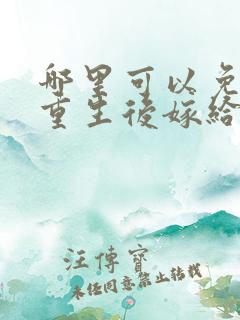 哪里可以免
重生後嫁給
汪傳寶
未经同意禁止转载